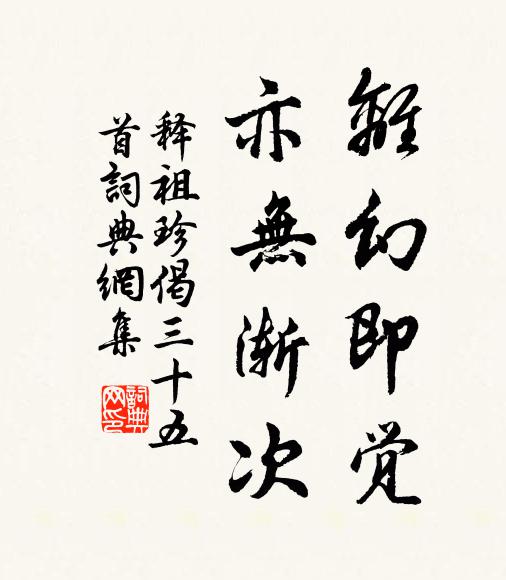 離幻即覚
亦無漸次
释祖珍偈三十五
首詞典網集
詞典
网印